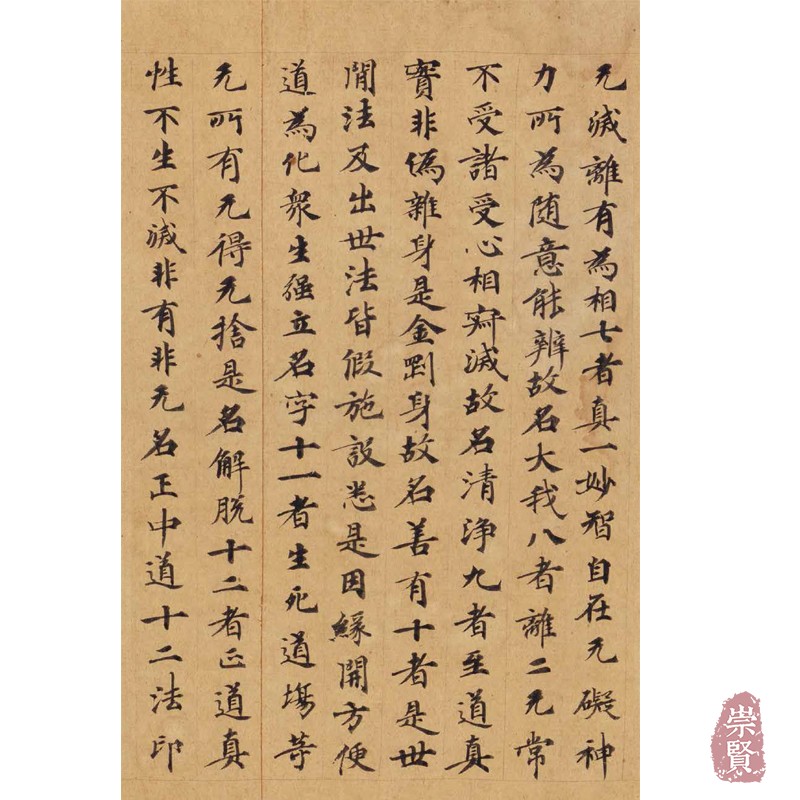 无滅離有為相七者真一妙智自在无礙神
力所為随意能辨故名大我八者離二无常
不受諸受心相寂滅故名清淨九者至道真
實非偽雜身是金剛身故名善有十者是世
間法及出世法皆假施設悉是因緣開方便
道為化衆生强立名字十一者生死道場等
无所有无得无捨是名解脱十二者正道真
性不生不滅非有非无名正中道十二法印
崇賢